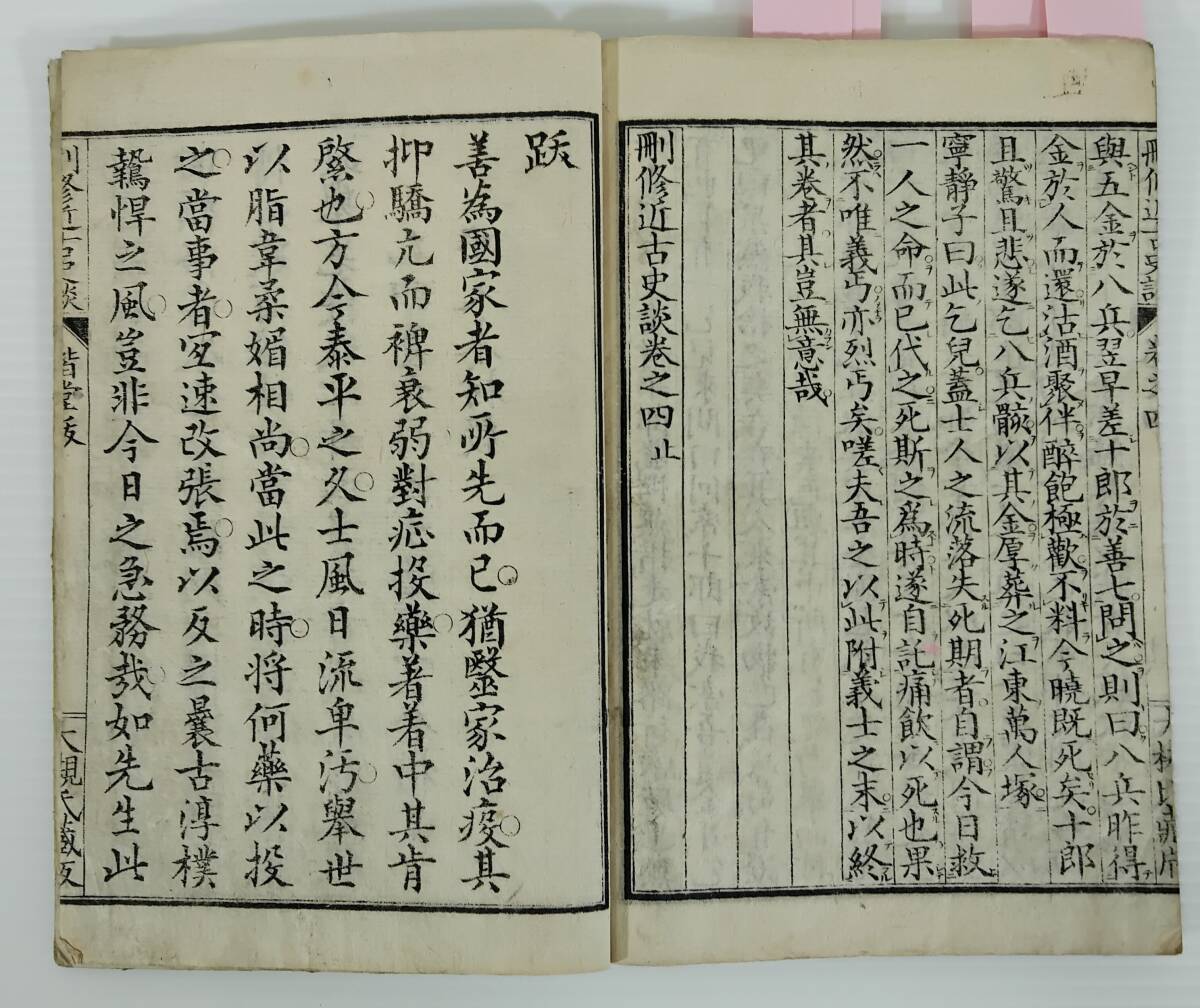 刪修近古史談 卷之四
與五金於八兵翌早差十郎於善七問之則曰八兵昨得
金於人而還沽酒聚伴醉飽極歡不料今曉既死矣十郎
且驚且悲遂乞八兵骸以其金厚葬之江東萬人塚
寧靜子曰此乞兒蓋士人之流落失死期者自謂今日救
一人之命而已代之死斯之爲時遂自託痛飲以死也果
然不唯義丐亦烈丐矣嗟夫吾之以此附義士之末以終
其卷者其豈無意哉
刪修近古史談卷之四止
跋
善為國家者知所先而已猶醫家治疫其
抑驕亢而裨衰弱對症投藥着着中其肯
綮也方今泰平之久士風日流卑汚舉世
以脂韋柔媚相尚當此之時将何藥以投
之當事者宜速改張焉以反之曩古淳樸
鷙悍之風豈非今日之急務哉如先生此
刪修近古史談 大槻氏藏版